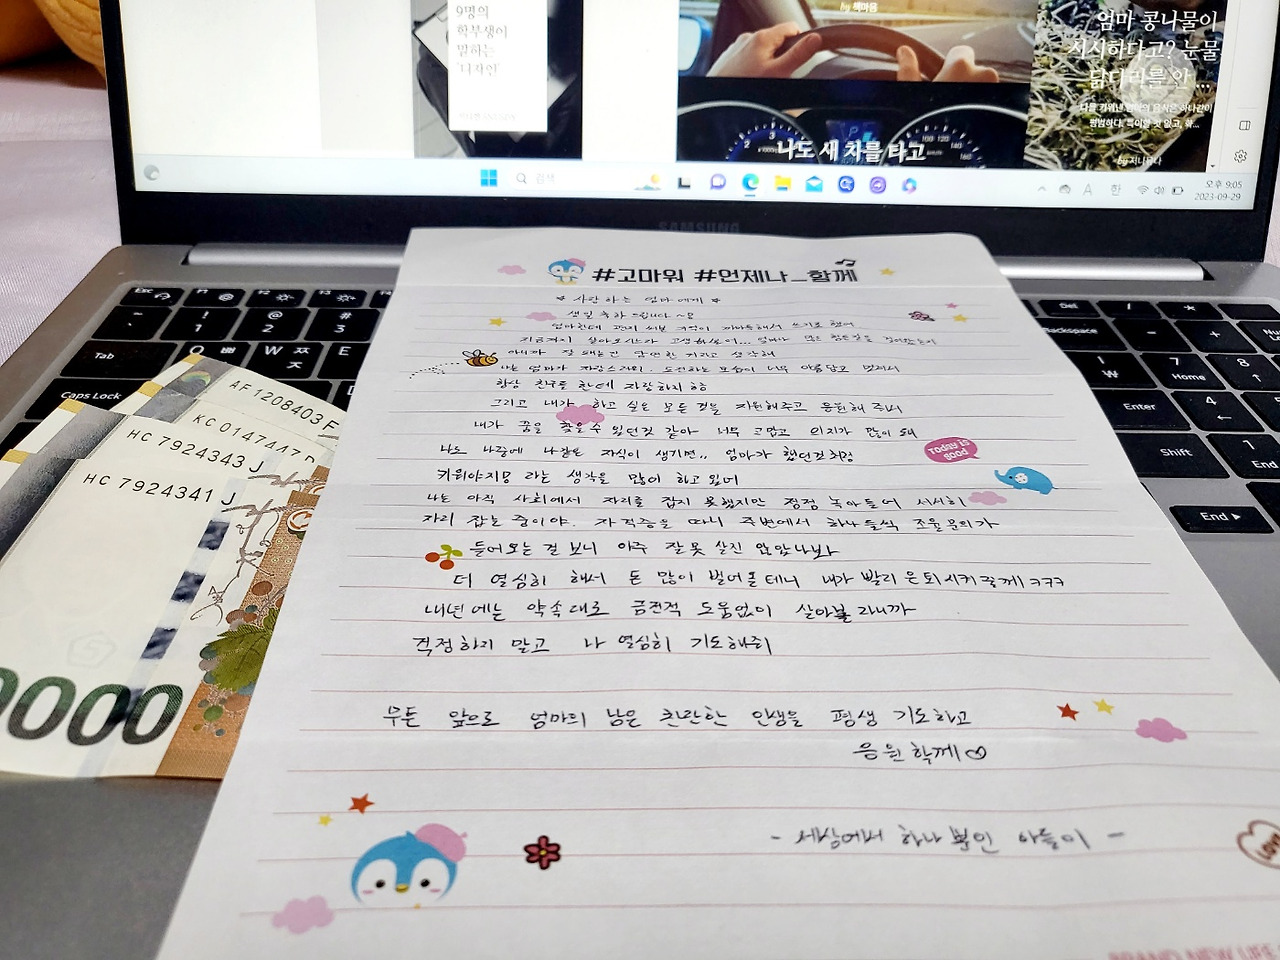 9명의
학부생이
말하는
'디자인'
by 책마음
나도 새 차를 타고
엄마 콩나물이
시시하다고? 눈물
닭다리를 안 ...
평범하다. 특이할 것 없고,
검색
A
한
오후 9:05
2023-09-29
SAMSUNG
#고마워 #언제나_함께
사랑하는 엄마에게
생일 축하드립니다~
엄마한테 편지 써본 기억이 까마득해서 쓰기로 했어
지금까지 살아오시느라 고생하셨어... 엄마가 많은
아니까 잘 되는건 당연한 거라고 생각해
나는 엄마가 자랑스러워. 도전하는 모습이 너무 아름답고 멋져서
항상 친구들한테 자랑하지 ㅎㅎ
그리고 내가 하고 싶은 모든 것을 지원해주고 응원해 줘서
내가 꿈을 찾을 수 있던것 같아 너무 고맙고 의지가 많이 돼
나도 나중에 나같은 자식이 생기면.. 엄마가 했던것처럼
키워야지 라는 생각을 많이 하고 있어
나는 아직 사회에서 자리를 잡지 못했지만 점점 녹아들어 서서히
자리 잡는 중이야. 자격증을 따니 주변에서 하나 둘씩 조율문의가
들어오는 걸 보니 아주 잘못 살진 않았나봐
더 열심히 해서 돈 많이 벌어올테니 내가 빨리 은퇴시켜줄게ㅋㅋㅋ
내년에는 약속대로 금전적 도움없이 살아볼라니까
걱정하지 말고 나 열심히 기도해줘
무튼 앞으로 엄마의 남은 찬란한 인생을 평생 기도하고
응원할께♡
- 세상에서 하나 뿐인 아들이 -
Today is good
LOVE
BRAND NEW LIFE
AF 1208403 F
KC 0147447
HC 7924343 J
HC 7924341 J
0000
Esc
F1
F2
F3
!
1
@
2
#
3
Tab
Q
ㅃ
W
ㅉ
E
Caps Lock
Del
Backspace
Num
7
Home
8
Enter
4
Shift
1
End
End